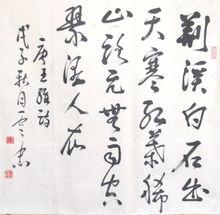 荆溪白石出
天寒红葉稀
山路元無雨空
翠湿人衣
唐王维詩
戊子秋月